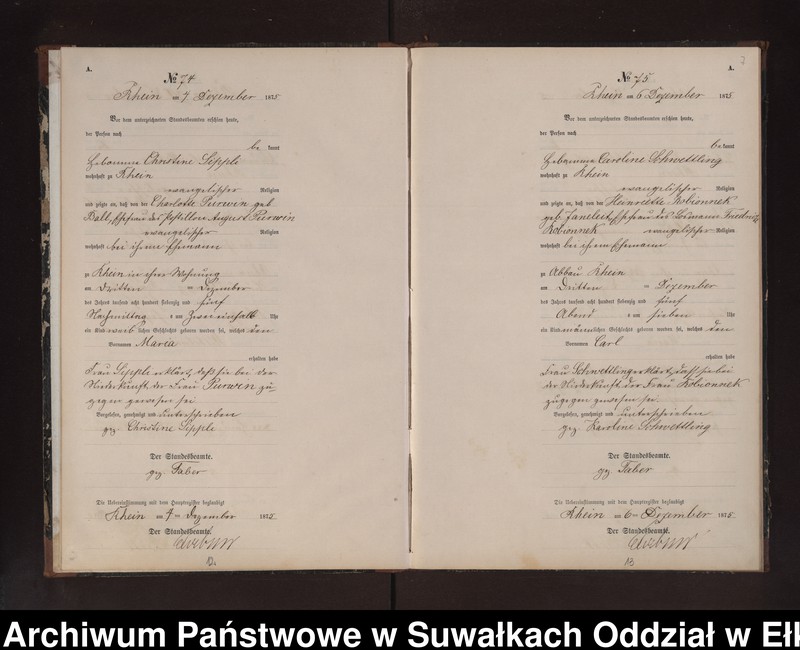 A.
No 74
Rhein am 4 Dezember 1875
Vor dem unterzeichneten Standesbeamten erschien heute,
der Person nach
be kannt
Hebamme Christine Seppli
wohnhaft zu Rhein
evangelischer Religion
und zeigte an, daß von der Charlotte Purwin geb
Ball, Ehefrau des Postillon August Purwin
evangelischer Religion
wohnhaft bei ihrem Ehemann
zu Rhein in ihrer Wohnung
am Dritten Dezember
des Jahres tausend acht hundert siebenzig und fünf
Nachmittag um Zwei einhalb Uhr
ein Kind weiblichen Geschlechts geboren worden sei, welches den
Vornamen Maria
erhalten habe
Frau Seppli erklärt, daß sie bei der
Niederkunft der Frau Purwin zu-
gegen gewesen sei
Vorgelesen, genehmigt und unterschrieben
gez. Christine Seppli
Der Standesbeamte.
gez. Faber
Die Uebereinstimmung mit dem Hauptregister beglaubigt
Rhein am 4 ten Dezember 1875
Der Standesbeamte.
A.
No 75
Rhein am 6 Dezember 1875
Vor dem unterzeichneten Standesbeamten erschien heute,
der Person nach
be kannt
Hebamme Caroline Schwettling
wohnhaft zu Rhein
evangelischer Religion
und zeigte an, daß von der Heinriette Kobionnek
geb. Ehefrau des Losmann Friedrich
Kobionnek evangelischer Religion
wohnhaft bei ihrem Ehemann
zu Abbau Rhein
am Dritten Dezember
des Jahres tausend acht hundert siebenzig und fünf
Abend um sieben Uhr
ein Kind männlichen Geschlechts geboren worden sei, welches den
Vornamen Carl
erhalten habe
Frau Schwettling erklärt, daß sie bei
der Niederkunft der Frau Kobionnek
zugegen gewesen sei
Vorgelesen, genehmigt und unterschrieben
gez. Karoline Schwettling
Der Standesbeamte.
gez. Faber
Die Uebereinstimmung mit dem Hauptregister beglaubigt
Rhein am 6 ten Dezember 1875
Der Standesbeamte.
Archiwum Państwowe w Suwałkach Oddział w Ełk